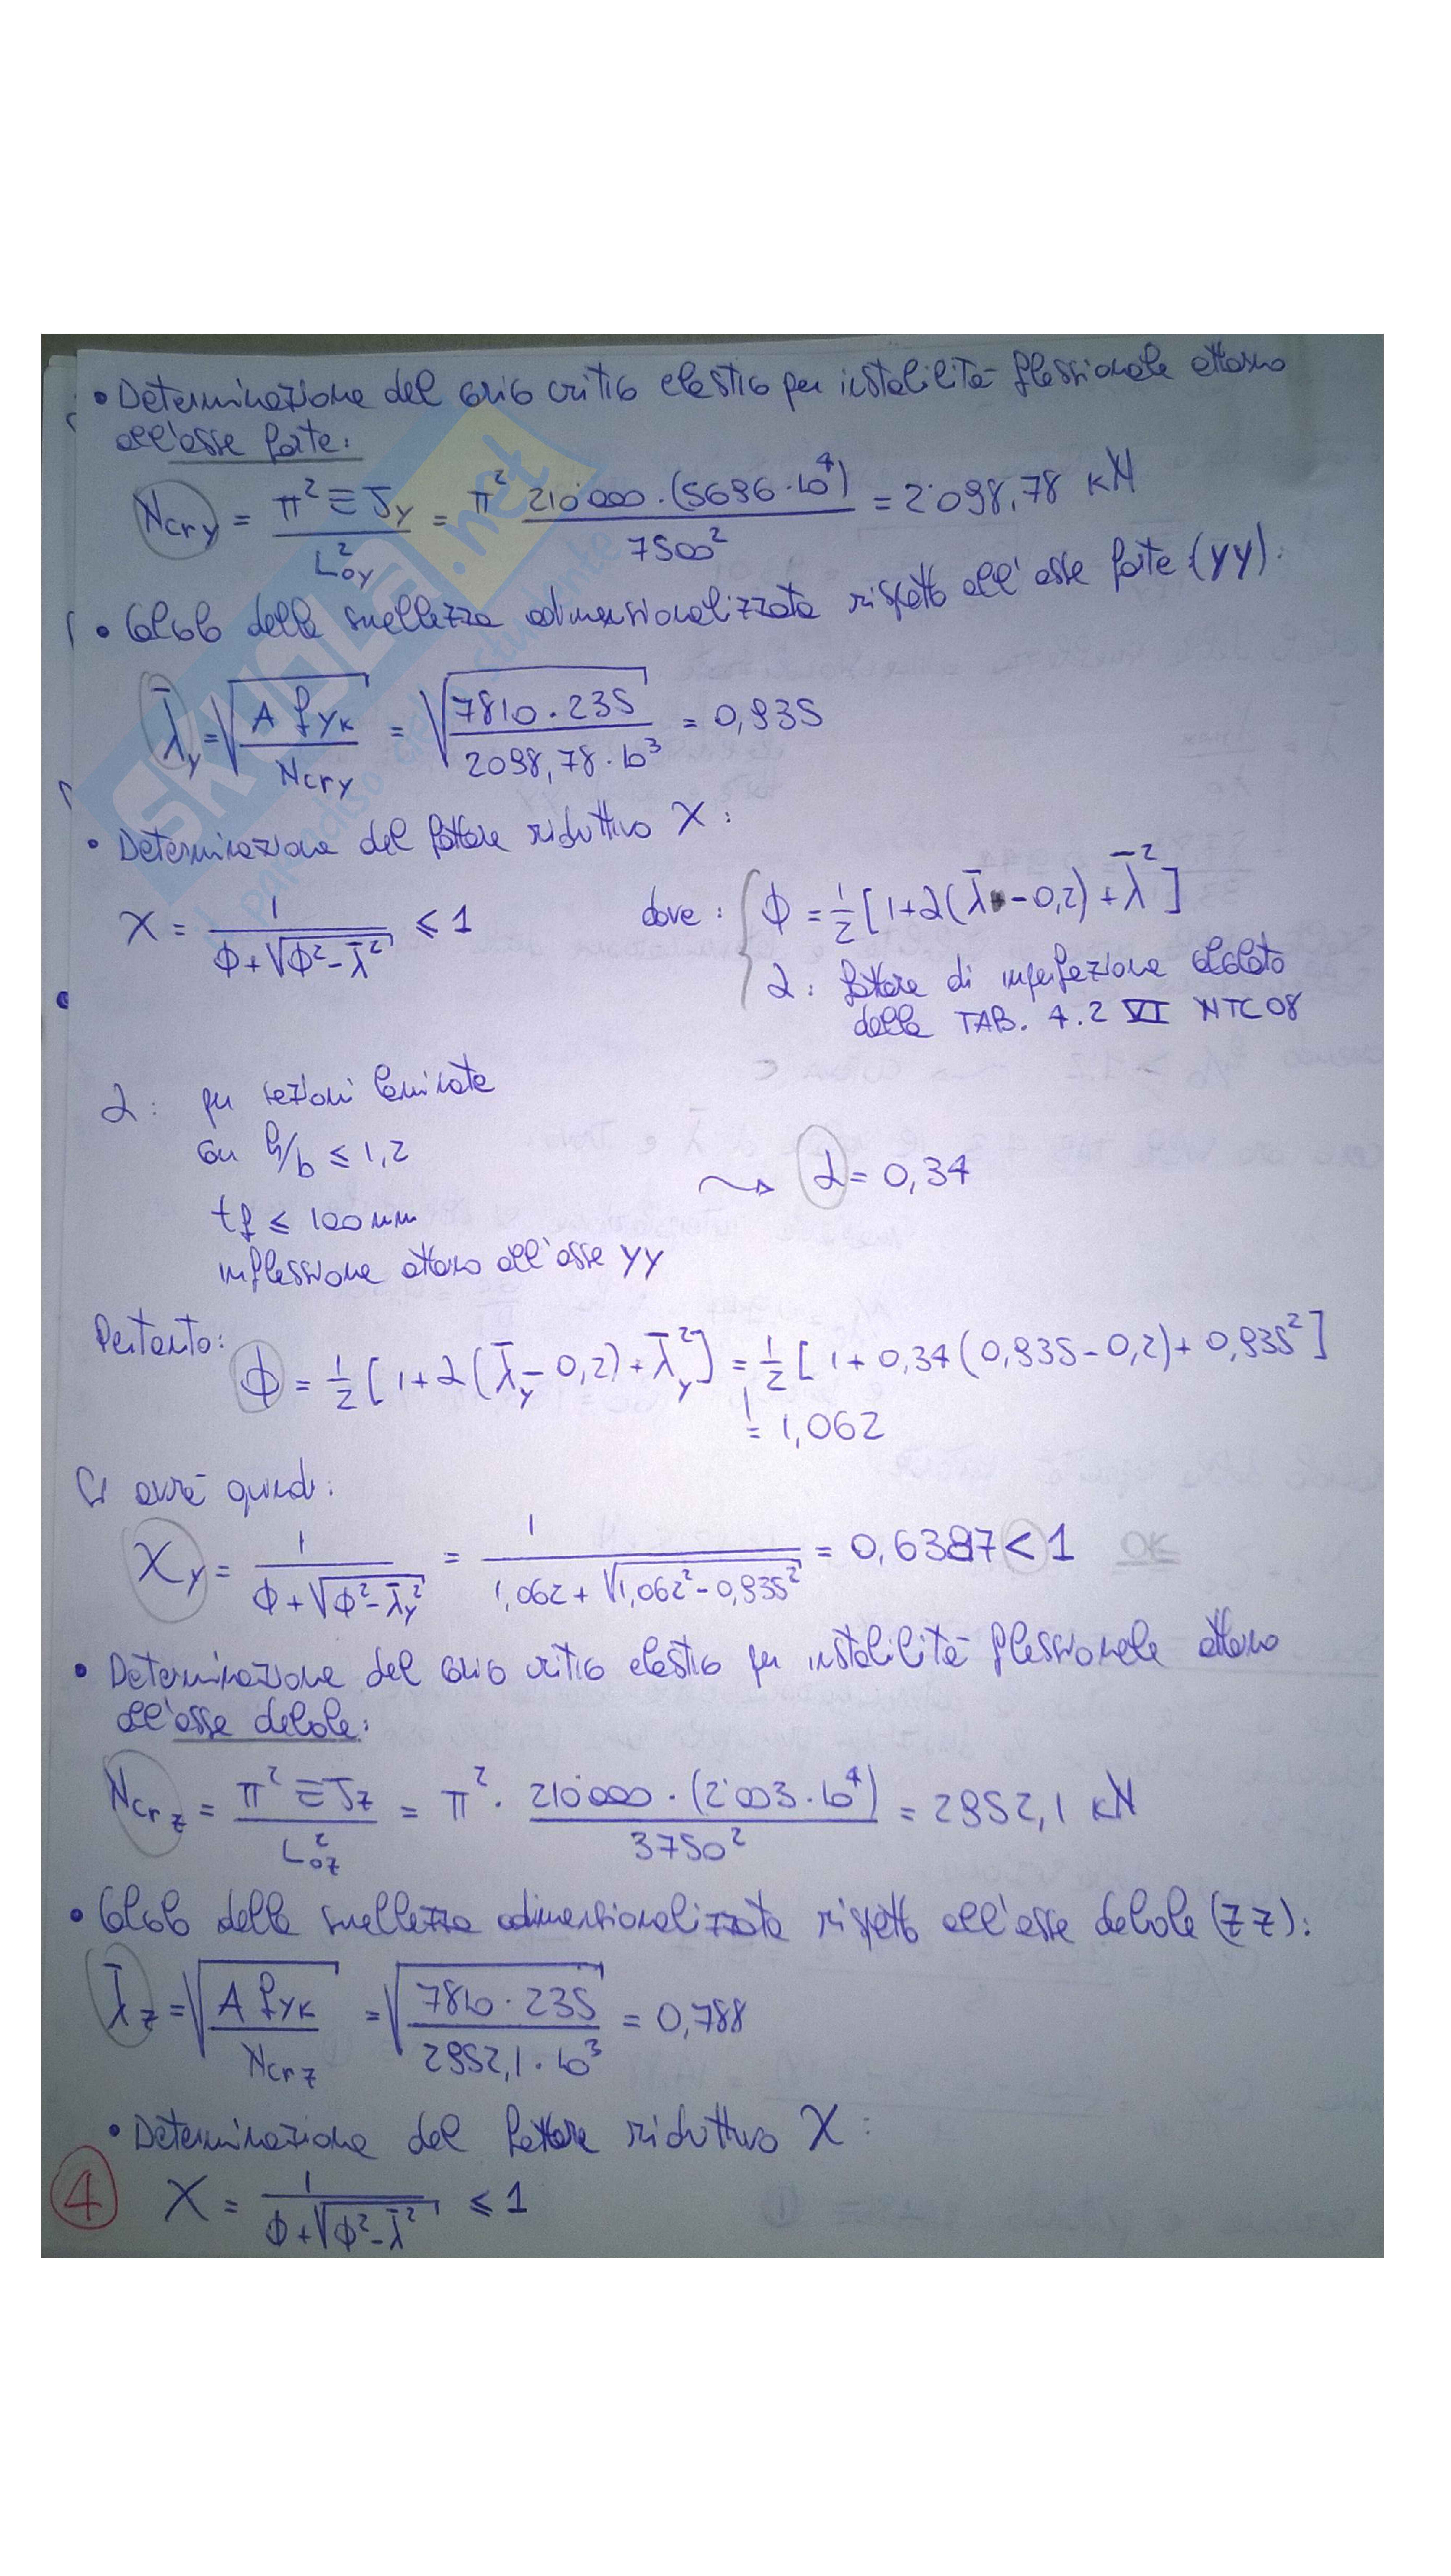 • Determinazione del carico critico elastico per instabilità flessionale attorno
all'asse forte:
Ncr y = π² E Jy / L²oy = π² 210'000 · (5696 · 10⁴) / 7500² = 2'098,78 kN
• Calcolo della snellezza adimensionalizzata rispetto all'asse forte (yy):
λ̄y = √(A fyk / Ncr y) = √(7810 · 235 / 2098,78 · 10³) = 0,935
• Determinazione del fattore riduttivo χ :
χ = 1 / (ϕ + √(ϕ² - λ̄²)) ≤ 1 dove : { ϕ = 1/2 [1 + α (λ̄ - 0,2) + λ̄²]
α : fattore di imperfezione calcolato
dalla TAB. 4.2 VI NTC08
α : per sezioni laminate
con h/b ≤ 1,2
tf ≤ 100 mm
inflessione attorno all'asse yy
⤳ α = 0,34
Pertanto: ϕ = 1/2 [1 + α (λ̄y - 0,2) + λ̄y²] = 1/2 [1 + 0,34 (0,935 - 0,2) + 0,935²]
= 1,062
Si avrà quindi:
χy = 1 / (ϕ + √(ϕ² - λ̄y²)) = 1 / (1,062 + √(1,062² - 0,935²)) = 0,6387 < 1 OK
• Determinazione del carico critico elastico per instabilità flessionale attorno
all'asse debole:
Ncr z = π² E Jz / L²oz = π² · 210'000 · (2'003 · 10⁴) / 3750² = 2952,1 kN
• Calcolo della snellezza adimensionalizzata rispetto all'asse debole (zz):
λ̄z = √(A fyk / Ncr z) = √(7810 · 235 / 2952,1 · 10³) = 0,788
• Determinazione del fattore riduttivo χ :
④ χ = 1 / (ϕ + √(ϕ² - λ̄²)) ≤ 1
SKUOLA.net